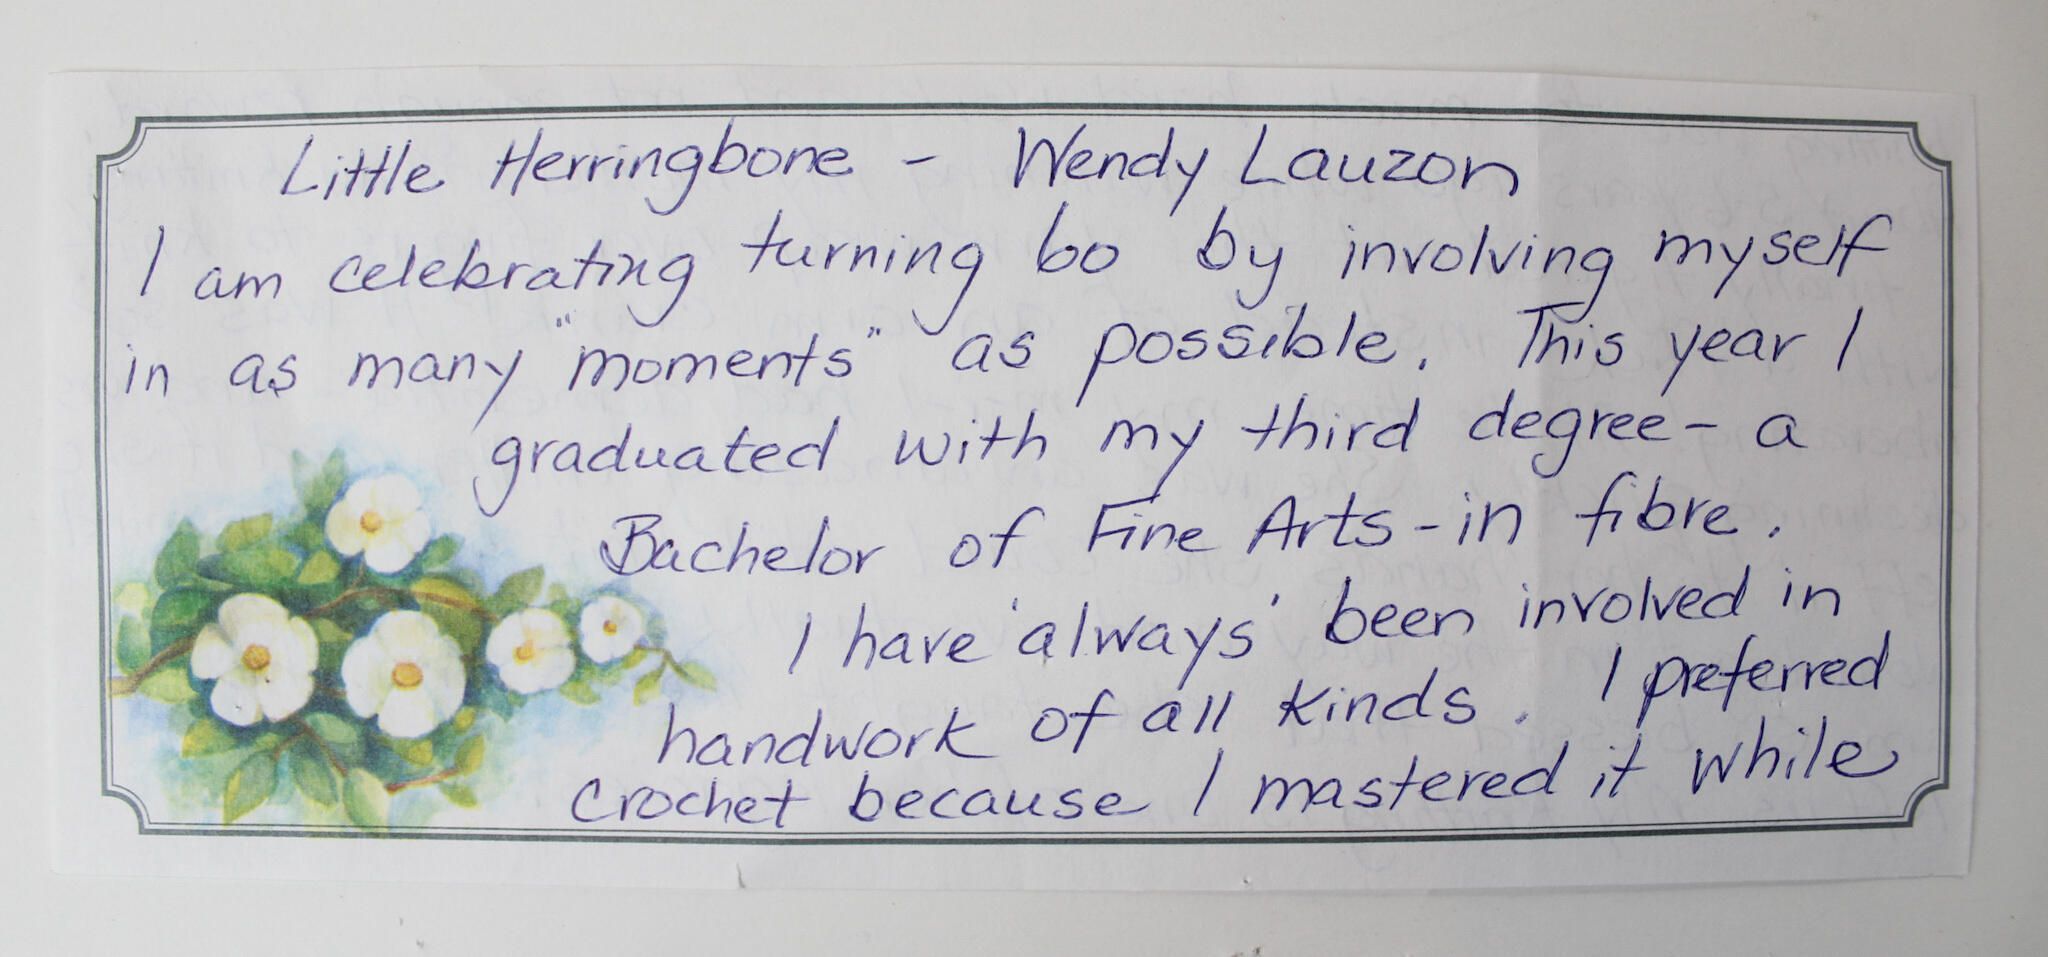 Little Herringbone - Wendy Lauzon
I am celebrating turning 60 by involving myself
in as many "moments" as possible. This year I
graduated with my third degree - a
Bachelor of Fine Arts - in fibre.
I have 'always' been involved in
handwork of all kinds. I preferred
crochet because I mastered it while